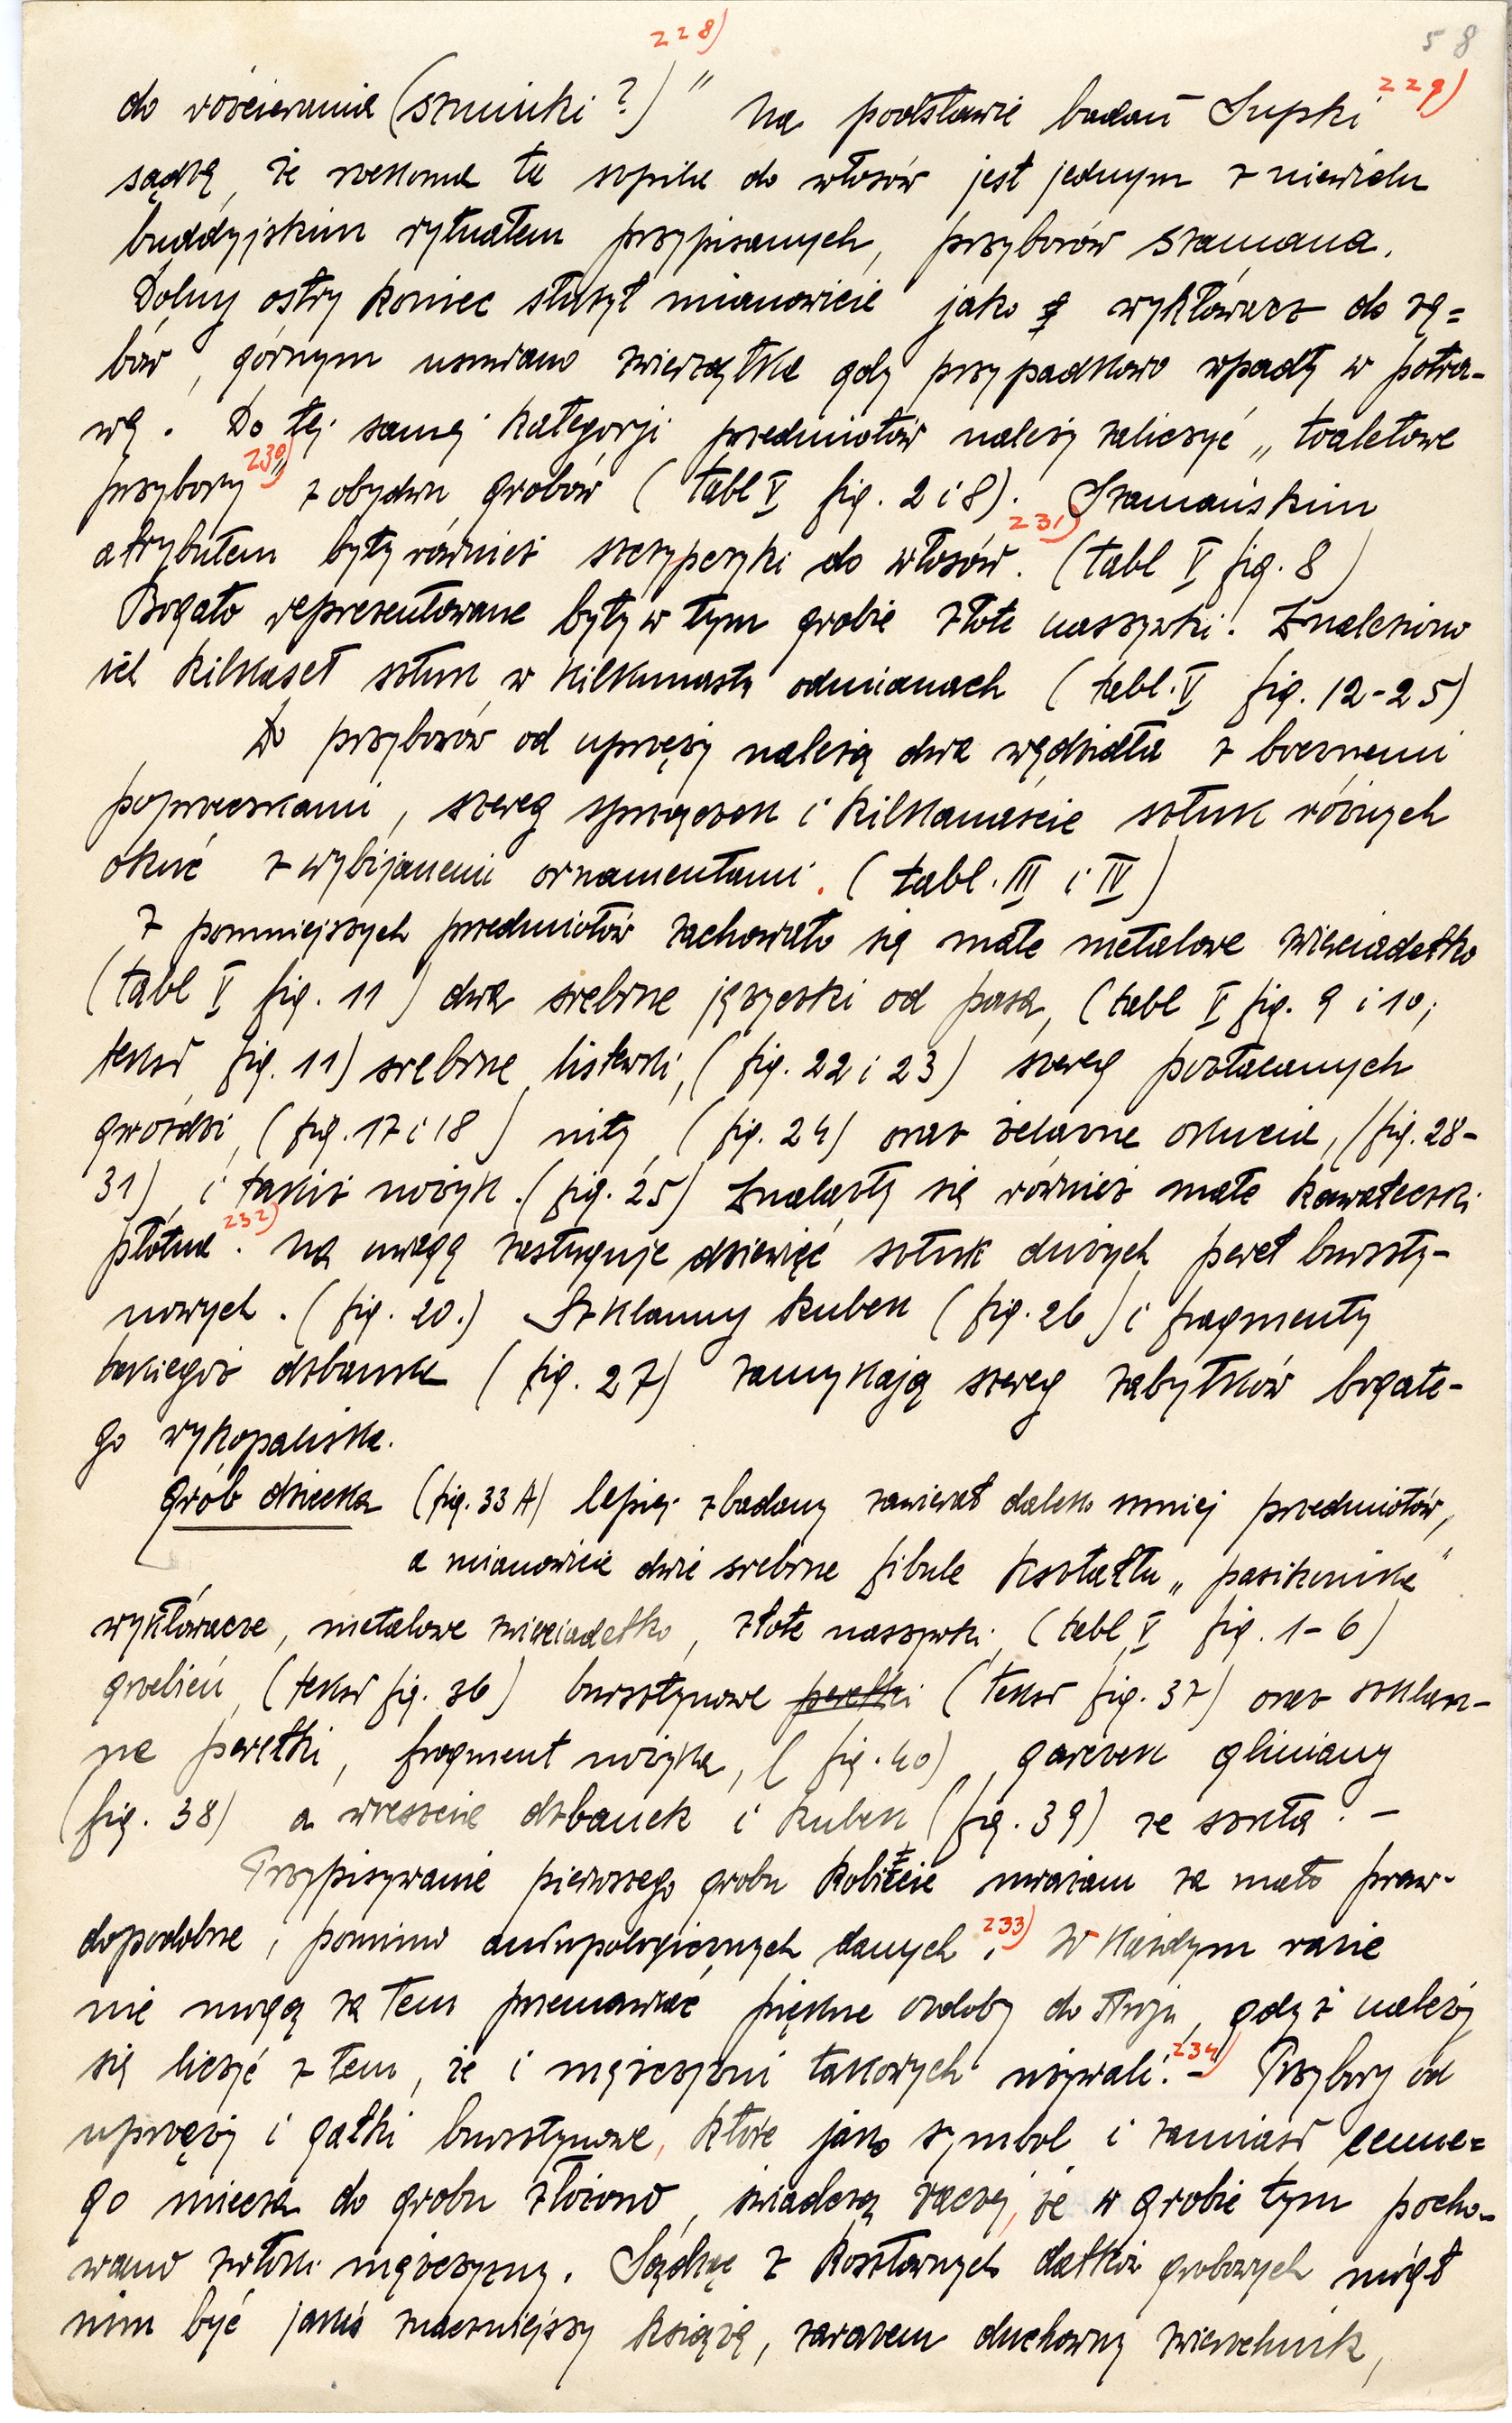 58
228) 229)
do rozcierania (szminki?)" Na podstawie badań Supki
sądzę, że rzekoma ta szpila do włosów jest jednym z niewielu
buddyjskim rytuałem przypisanych, przyborów szamana.
Dolny ostry koniec służył mianowicie jako wykłówacz do zę=
bów, górnym usuwano zwierzątka gdy przypadkowo wpadły w potra-
wę. Do tej samej kategorji przedmiotów należy zaliczyć „toaletowe
przybory" 230) z obydwu grobów (tabl V fig. 2 i 8). Szamańskim
atrybutem były również szczypczyki do włosów. 231) (tabl V fig. 8)
Bogato reprezentowane były w tym grobie złote naszywki. Znaleziono
ich kilkaset sztuk w kilkunastu odmianach (tabl. V fig. 12-25)
Do przyborów od uprzęży należą dwa wędzidła z bocznemi
poprzeczkami, szereg sprzączek i kilkanaście sztuk różnych
okuć z wybijanemi ornamentami. (tabl. III i IV)
Z pomniejszych przedmiotów zachowało się małe metalowe zwierciadełko
(tabl V fig. 11) dwa srebrne języczki od pasa, (tabl V fig. 9 i 10;
tekst fig. 11) srebrne listewki, (fig. 22 i 23) szereg pozłacanych
gwoździ, (fig. 17 i 18) nity (fig. 24) oraz żelazne okucia, (fig. 28-
31) i takiż nożyk. (fig. 25) Znalazły się również małe kawałeczki
płótna 232). Na uwagę zasługuje dziewięć sztuk dużych pereł burszty-
nowych. (fig. 20.) Szklanny kubek (fig. 26) i fragmenty
takiegoż dzbanka (fig. 27) zamykają szereg zabytków bogate-
go wykopaliska.
Grób dziecka (fig. 33 A) lepiej zbadany zawierał daleko mniej przedmiotów,
a mianowicie dwie srebrne fibule kształtu „pasikonika"
wykłówacze, metalowe zwierciadełko, złote naszywki, (tabl V fig. 1-6)
grzebień, (tekst fig. 36) bursztynowe perełki (tekst fig. 37) oraz szklan-
ne perełki, fragment nożyka, (fig. 40), garczek gliniany
(fig. 38) a wreszcie dzbanek i kubek (fig. 39) ze szkła. -
Przypisywanie pierwszego grobu kobiecie uważam za mało praw-
dopodobne, pomimo antropologicznych danych 233). W każdym razie
nie mogą za tem przemawiać piękne ozdoby do stroju, gdyż należy
się liczyć z tem, że i mężczyźni takowych używali. 234) - Przybory od
uprzęży i gałki bursztynowe, które jako symbol i zamiast cenne=
go miecza do grobu złożono, świadczą raczej, że w grobie tym pocho-
wano zwłoki mężczyzny. Sądząc z kosztownych datków grobowych mógł
nim być jakiś znaczniejszy książę, zarazem duchowny zwierzchnik,